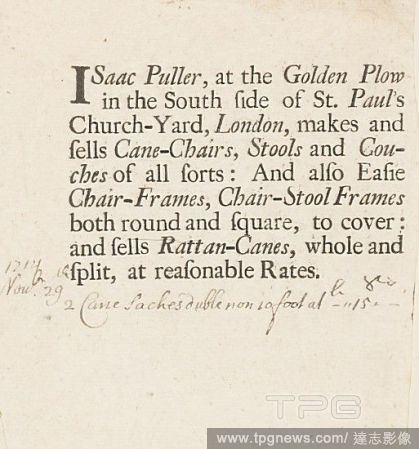 ISaac Puller, at the Golden Plow
in the South ſide of St. Paul's
Church-Yard, London, makes and
ſells Cane-Chairs, Stools and Cou-
ches of all ſorts: And alſo Eaſie
Chair-Frames, Chair-Stool Frames
both round and ſquare, to cover:
and ſells Rattan-Canes, whole and
ſplit, at reaſonable Rates.
1717
Nov. 29
2 Cane Saches duble non 10 foot at 15
TPG
www.tpgnews.com/ 達志影像